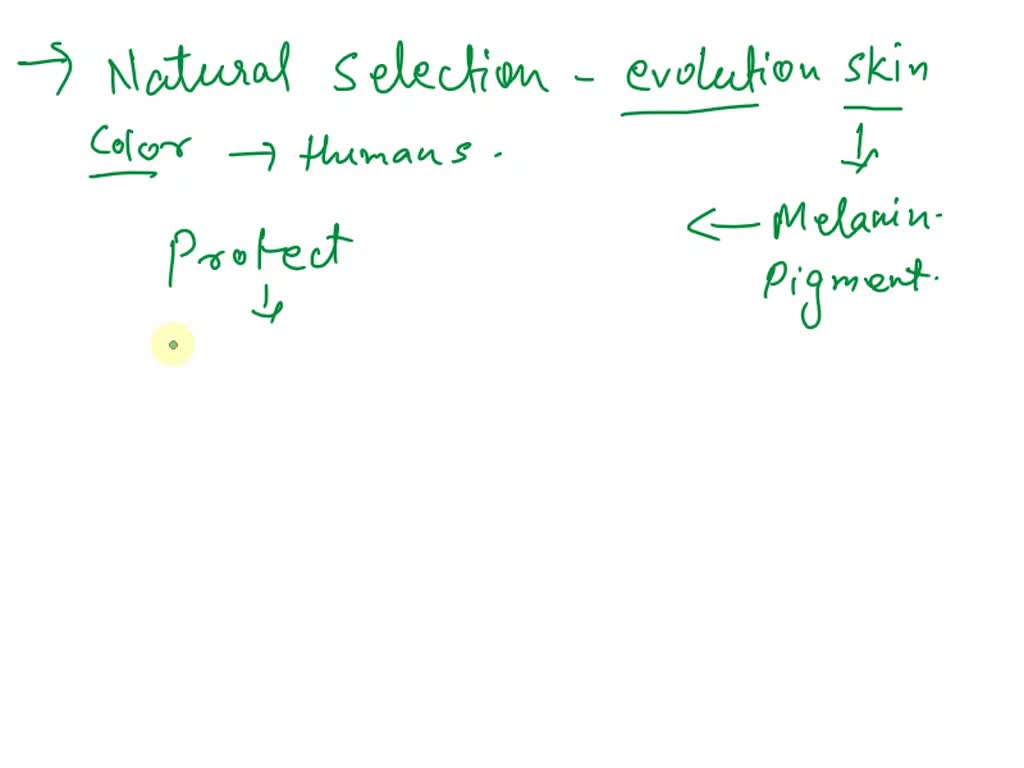 → Natural Selection - evolution skin
Color → Humans.
← Melanin.
Pigment.
Protect